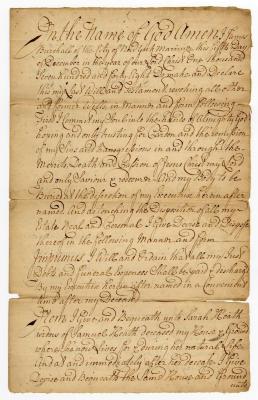 In the Name of God Amen I
Burchall of the City of New York Marriner this fifth Day
of December in the year of our Lord Christ One thousand
Seven hundred and forty Eight Do make and Declare
this my Last Will and Testament revoking all other
and former Wills in Manner and form following
First I Commit my Soul into the hands of Almighty God
hoping and only trusting for Pardon and the remission
of my Sins and transgressions in and through the
Merits Death and Passion of Jesus Christ my Lord
and only Saviour & redeemer And my Body to be
Buried at the discretion of my Executrix herein after
named And as touching the Disposition of all my
Estate Real and Personal I Give Devise and Dispose
thereof in the following Manner and form
Imprimis I Will and Ordain that all my Just
Debts and funeral Expences Shall be paid & discharged
by my Executrix herein after named in a Convenient
time after my Decease
Item I Give and Bequeath unto Sarah Heath
widow of Samuel Heath deceased my House & Ground
where She now lives for & during her natural Life
And at and immediately after her decease I Give
Devise and Bequeath the Said House and Ground
unto